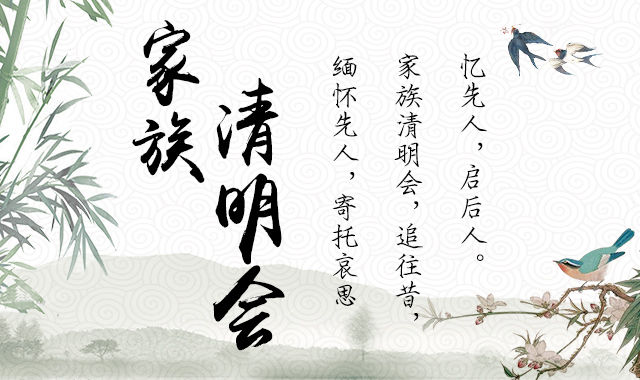 家族
清明会
忆先人，启后人。
家族清明会，追往昔，
缅怀先人，寄托哀思